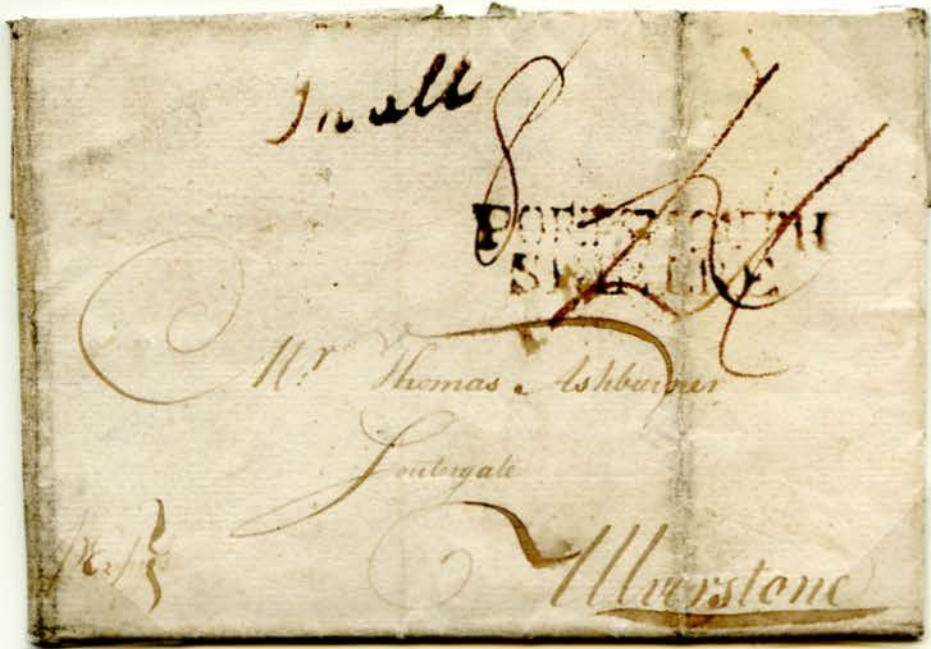 In all 8
PORTSMOUTH
SHIP
Mr Thomas Ashburner
Soutergate
Ulverstone